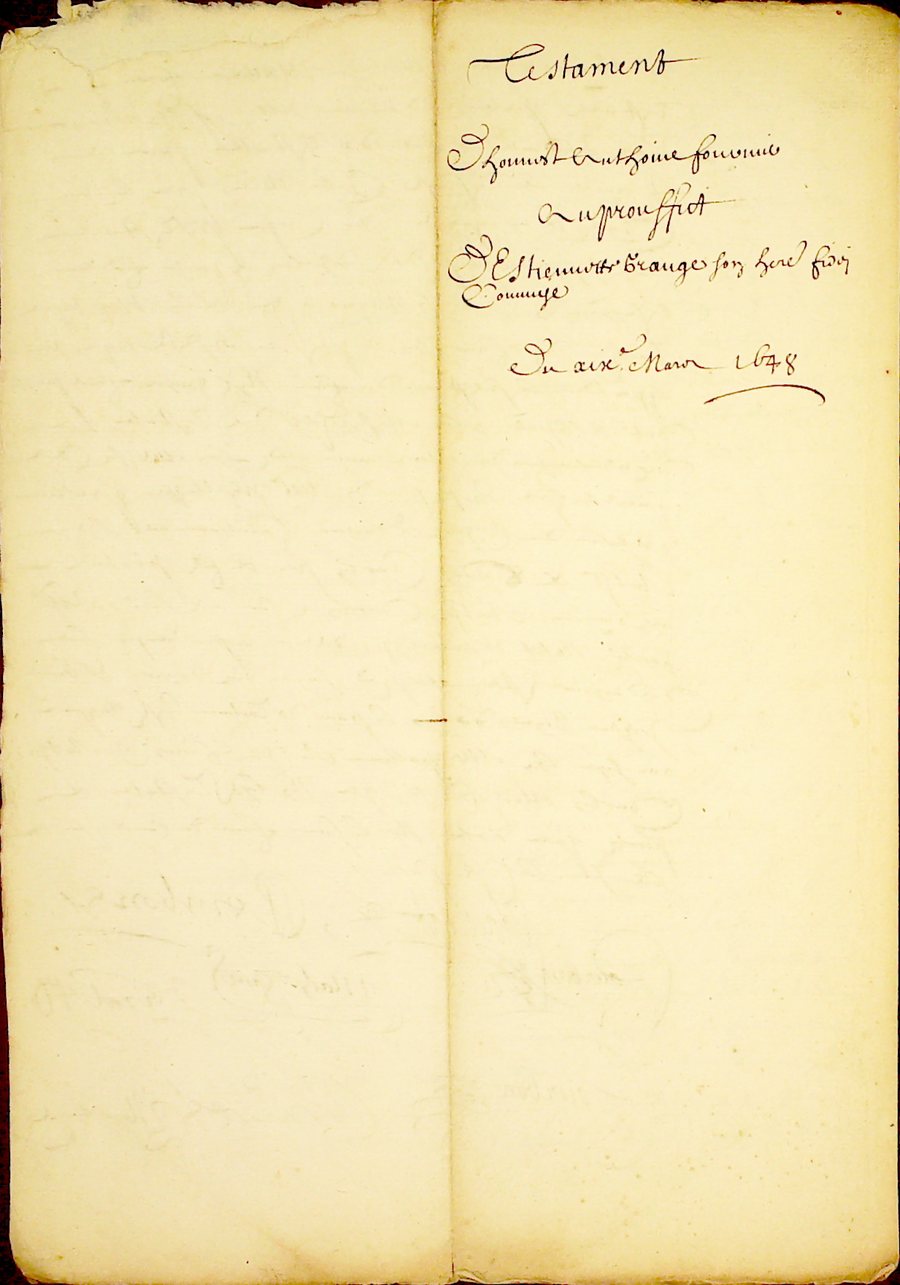 Testament
D honnest Anthoine
Au prouffict
D Estiennette Grange son here fidei
Commise
Du xix.e Mars 1648